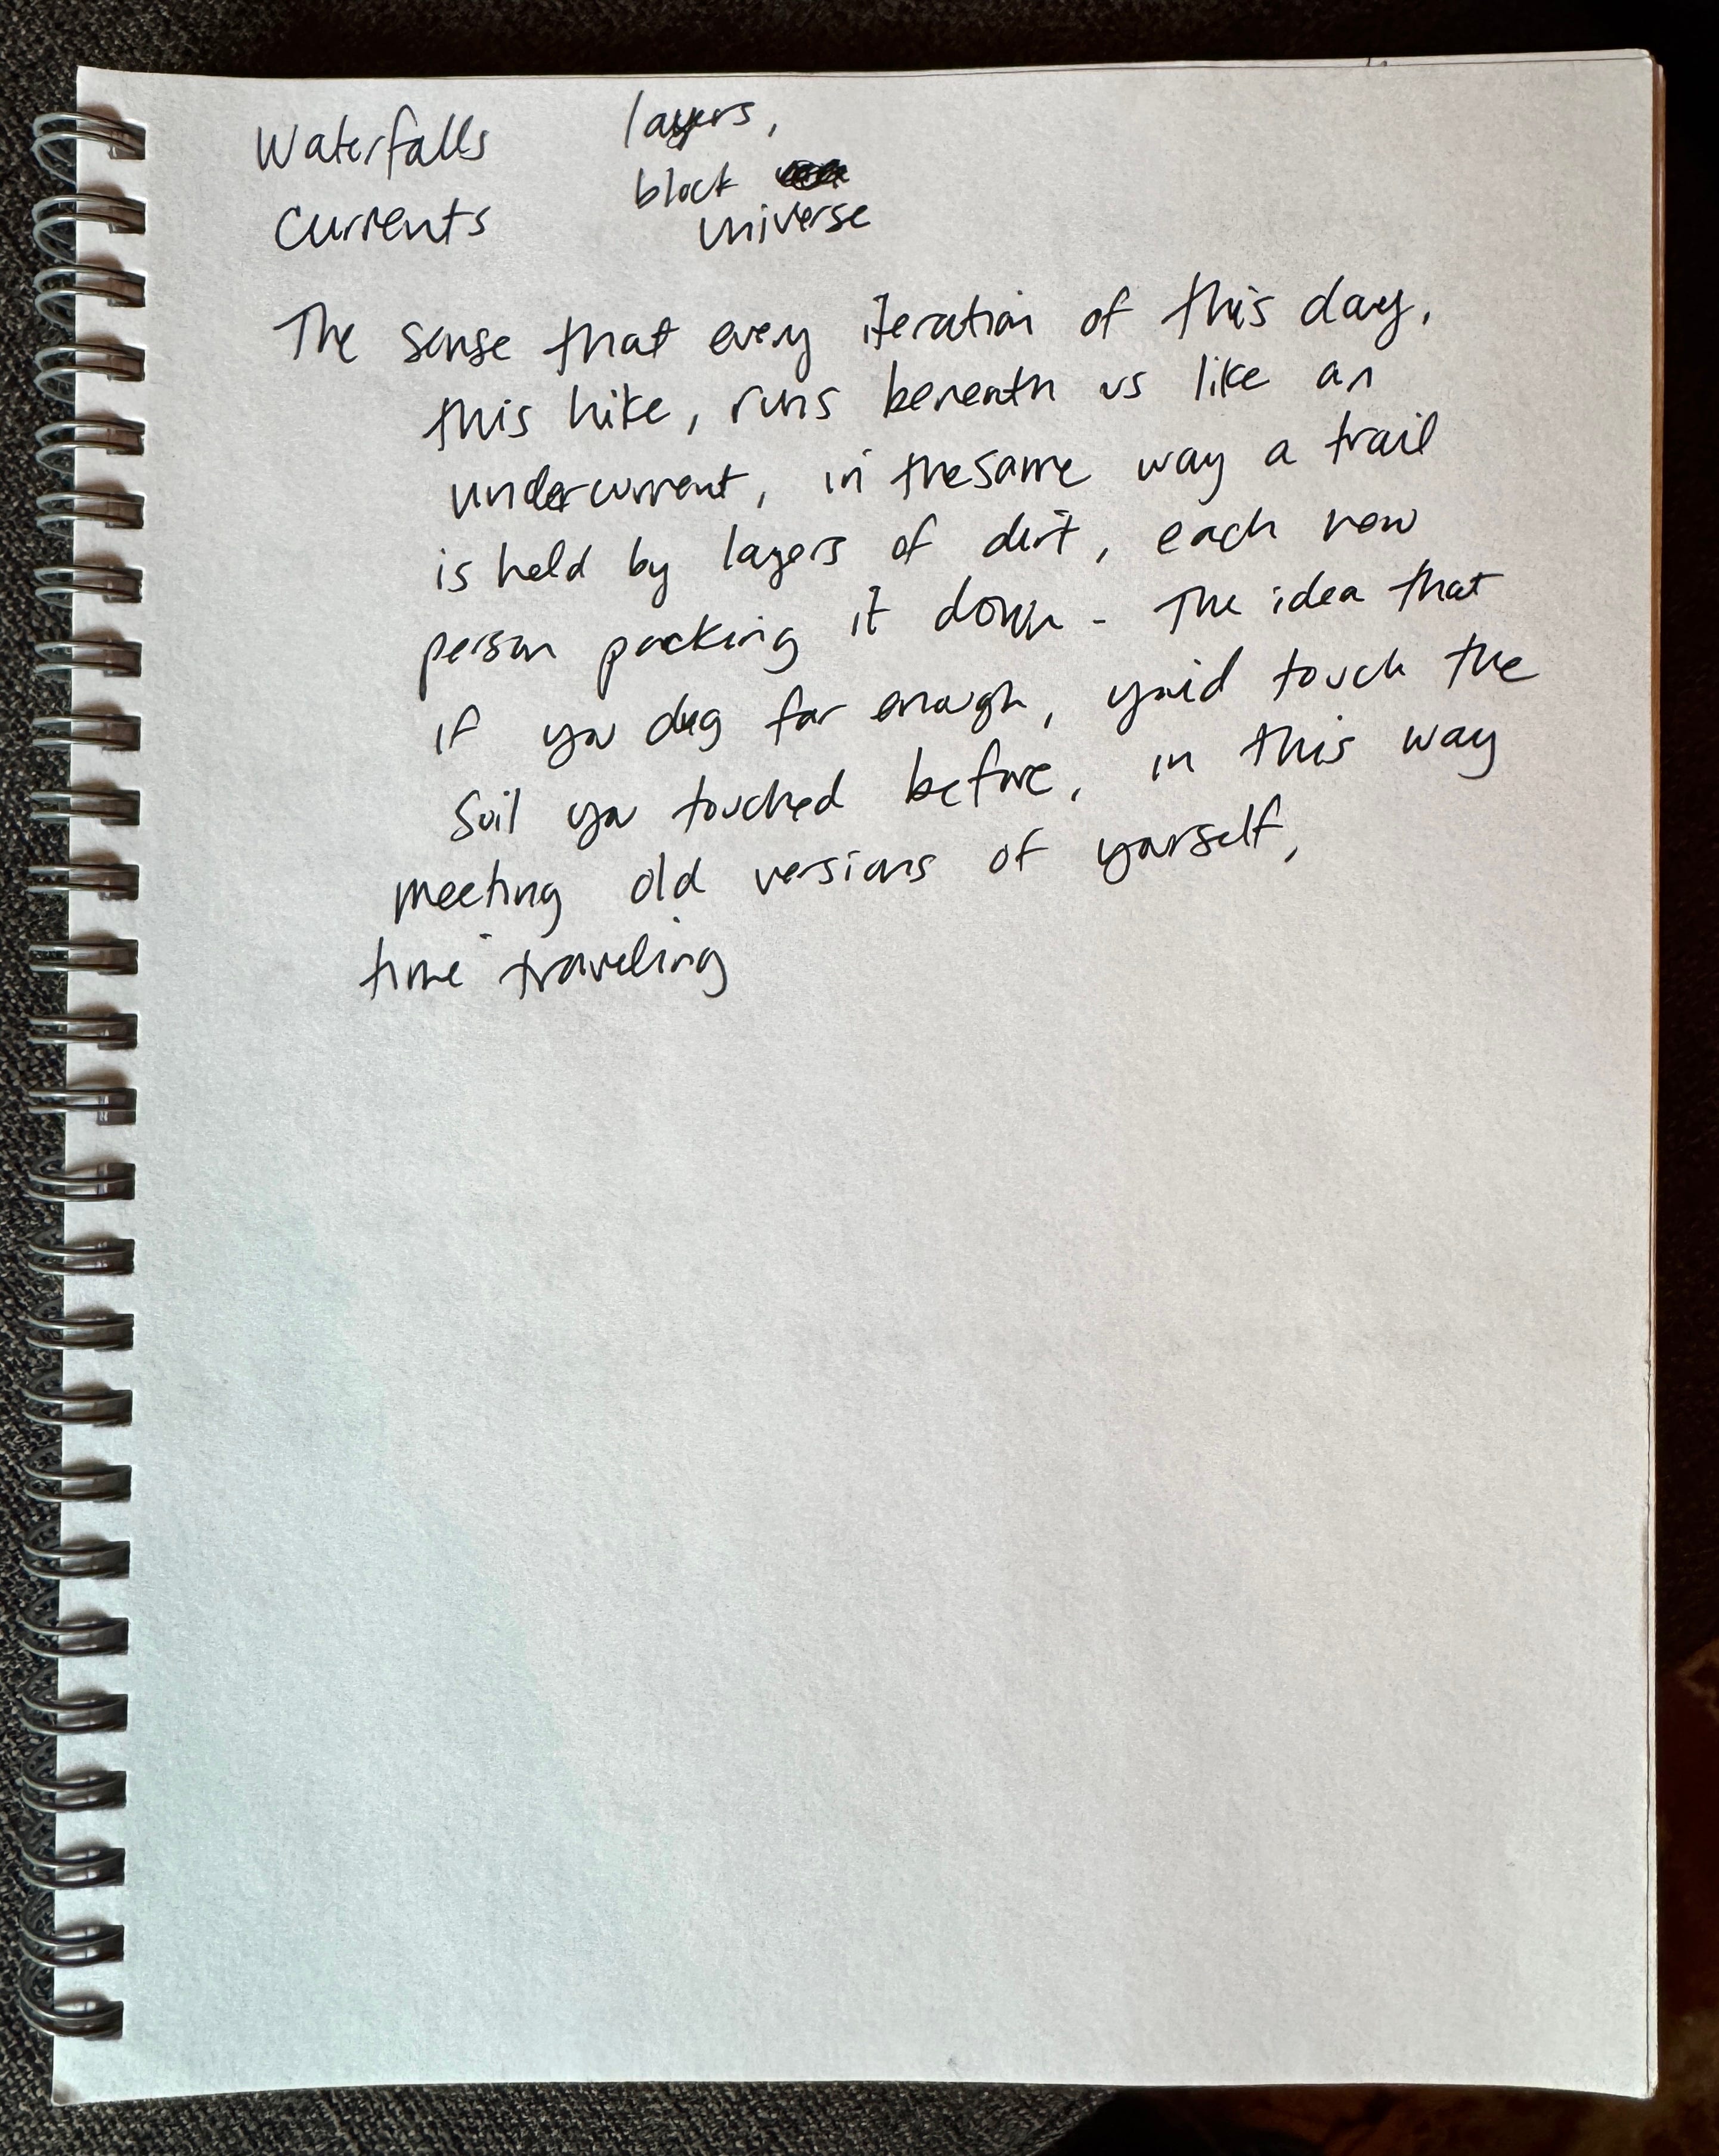 Waterfalls
Currents
layers,
block
universe
The sense that every iteration of this day,
this hike, runs beneath us like an
undercurrent, in the same way a trail
is held by layers of dirt, each new
person packing it down. The idea that
if you dug far enough, you'd touch the
soil you touched before, in this way
meeting old versions of yourself,
time traveling